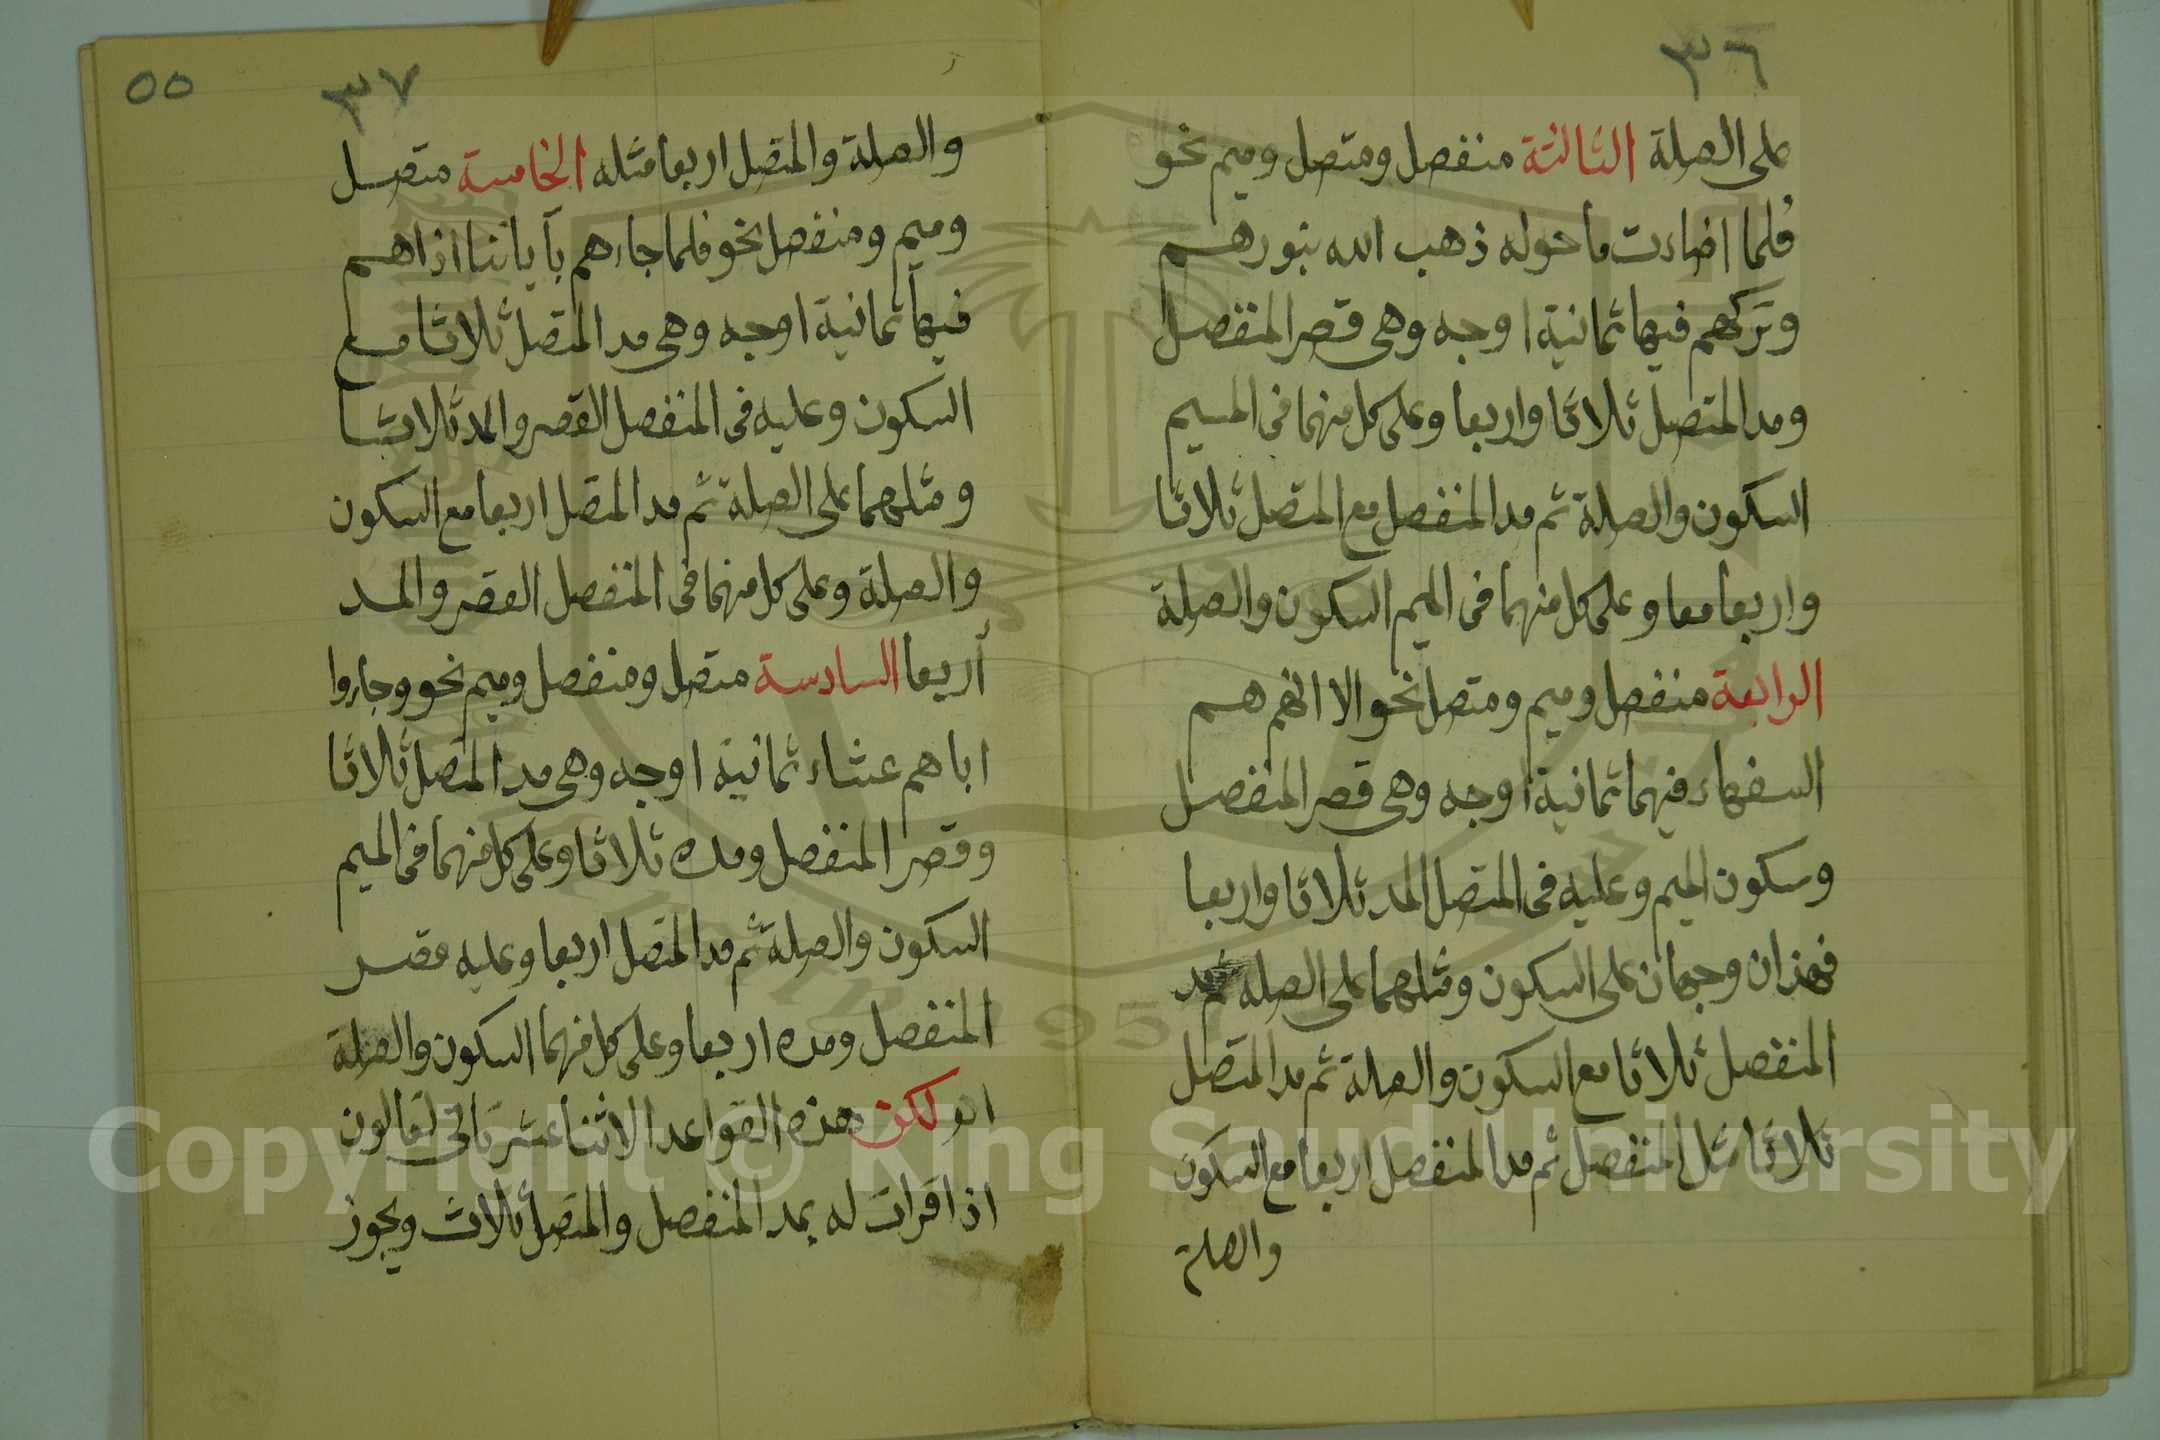 ٣٦
على الصلة الثالثة منفصل ومتصل وميم نحو
فلما اضاءت ما حوله ذهب الله بنورهم
وتركهم فيها ثمانية اوجه وهى قصر المنفصل
ومد المتصل ثلاثا واربعا وعلى كل منهما فى الميم
السكون والصلة ثم مد المنفصل مع المتصل ثلاثا
واربعا معا وعلى كل منهما فى الميم السكون والصلة
الرابعة منفصل وميم ومتصل نحو الا انهم هم
السفهاء فيهما ثمانية اوجه وهى قصر المنفصل
وسكون الميم وعليه فى المتصل المد ثلاثا واربعا
فهذان وجهان على السكون ومثلهما على الصله ثم مد
المنفصل ثلاثا مع السكون والصلة ثم مد المتصل
ثلاثا مثل المنفصل ثم مد المنفصل اربعا مع السكون
والصلة
٣٧
٥٥
والصلة والمتصل اربعا مثله الخامسة متصل
وميم ومنفصل نحو فلما جاءهم بآياتنا اذا هم
فيها ثمانية اوجه وهى مد المتصل ثلاثا مع
السكون وعليه فى المنفصل القصر والمد ثلاثا
ومثلهما على الصلة ثم مد المتصل اربعا مع السكون
والصلة وعلى كل منهما فى المنفصل القصر والمد
أربعا السادسة متصل ومنفصل وميم نحو وجاءوا
اباهم عشاء ثمانية اوجه وهى مد المتصل ثلاثا
وقصر المنفصل ومده ثلاثا وعلى كل منهما فى الميم
السكون والصلة ثم مد المتصل اربعا وعليه قصر
المنفصل ومده اربعا وعلى كل منهما السكون والصلة
ولكن هذه القواعد الاثنا عشر تاتى لقالون
اذا قرات له بمد المنفصل والمتصل ثلاث ويجوز
Copyright © King Saud University
1957